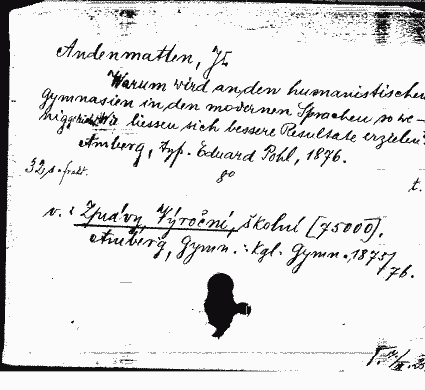 Andenmatten, H
Warum wird an den humanistischen
Gymnasien in den modernen Sprachen so we-
nig Wie liessen sich bessere Resultate erzielen?
Amberg, typ. Eduard Pohl, 1876.
32 s. 8o
t.
v.: Zprávy, Výroční, školní [75000].
Amberg, Gymn.: Kgl. Gymn. 1875/
76.